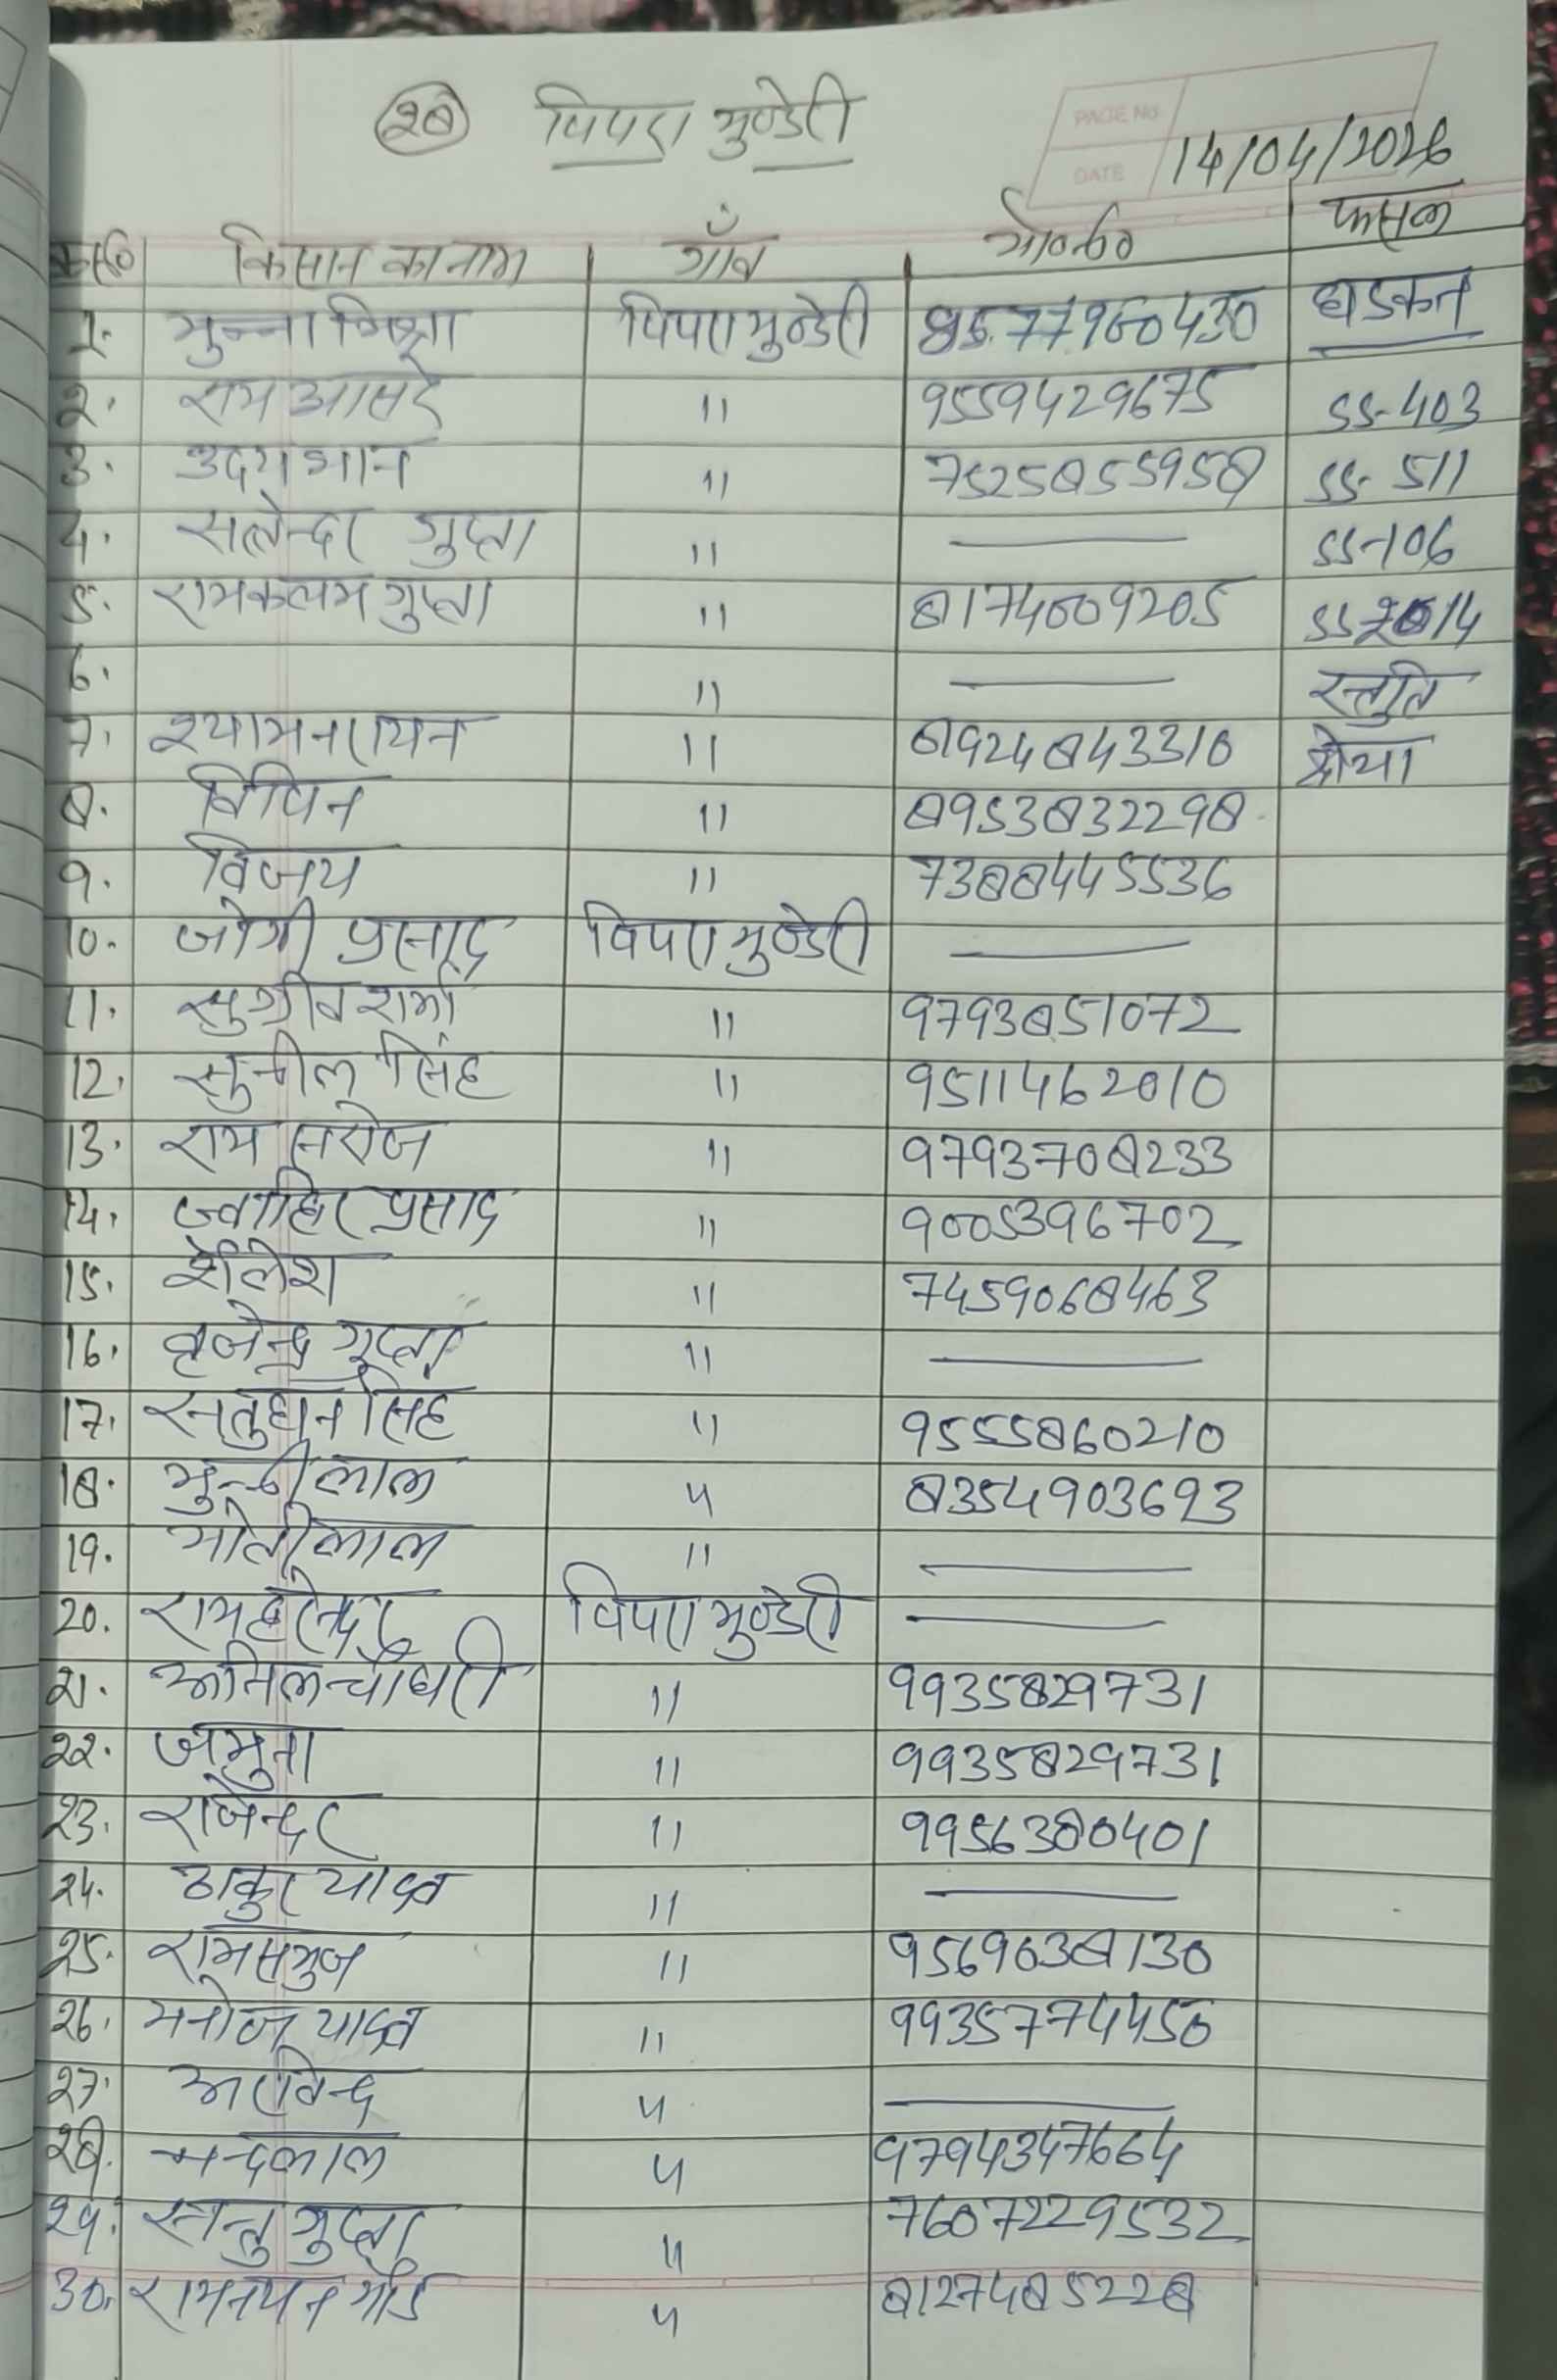 २8 पिपरा मुण्डेरी
PAGE NO.
DATE 14/04/2026
क्र०सं० किसान का नाम गाँव मो०नं० फसल
1. मुन्ना मिश्रा पिपरा मुण्डेरी धडकन
२. राम आसरे 11 9559429675 SS-403
3. उदयभान 11 7525855958 SS-511
4. सत्येन्दर गुप्ता 11 — SS-106
5. रामकलम गुप्ता 11 8174009205
6. 11 — स्तुति
7. श्यामनरायन 11 8924843310 श्रेया
8. विपिन 11 8953832298
9. विजय 11 7388445536
10. जोगी प्रसाद पिपरा मुण्डेरी —
11. सुग्रीव शर्मा 11 9793851072
12. सुनील सिंह 11 9511462010
13. राम सरोज 11 9793708233
14. ज्वाहिर प्रसाद 11 9005396702
15. शैलेश 11 7459068463
16. बृजेन्द्र गुप्ता 11 —
17. सतुधन सिंह 11 9555860210
18. मुन्नीलाल " 8354903693
19. मोतीलाल 11 —
20. पिपरा मुण्डेरी —
२1. अनिल चौधरी 11 9935829731
२२. जमुना 11 9935829731
२3. राजेन्दर 11 9956380401
२4. ठाकुर यादव 11 —
२5. रामसमुज 11 9569038130
२6. मनोज यादव 11 9935774450
२7. अरविन्द " —
२8. नन्दलाल " 9794347664
२9. सन्तु गुप्ता " 7607229532
30. रामनयन गौड " 8127485228